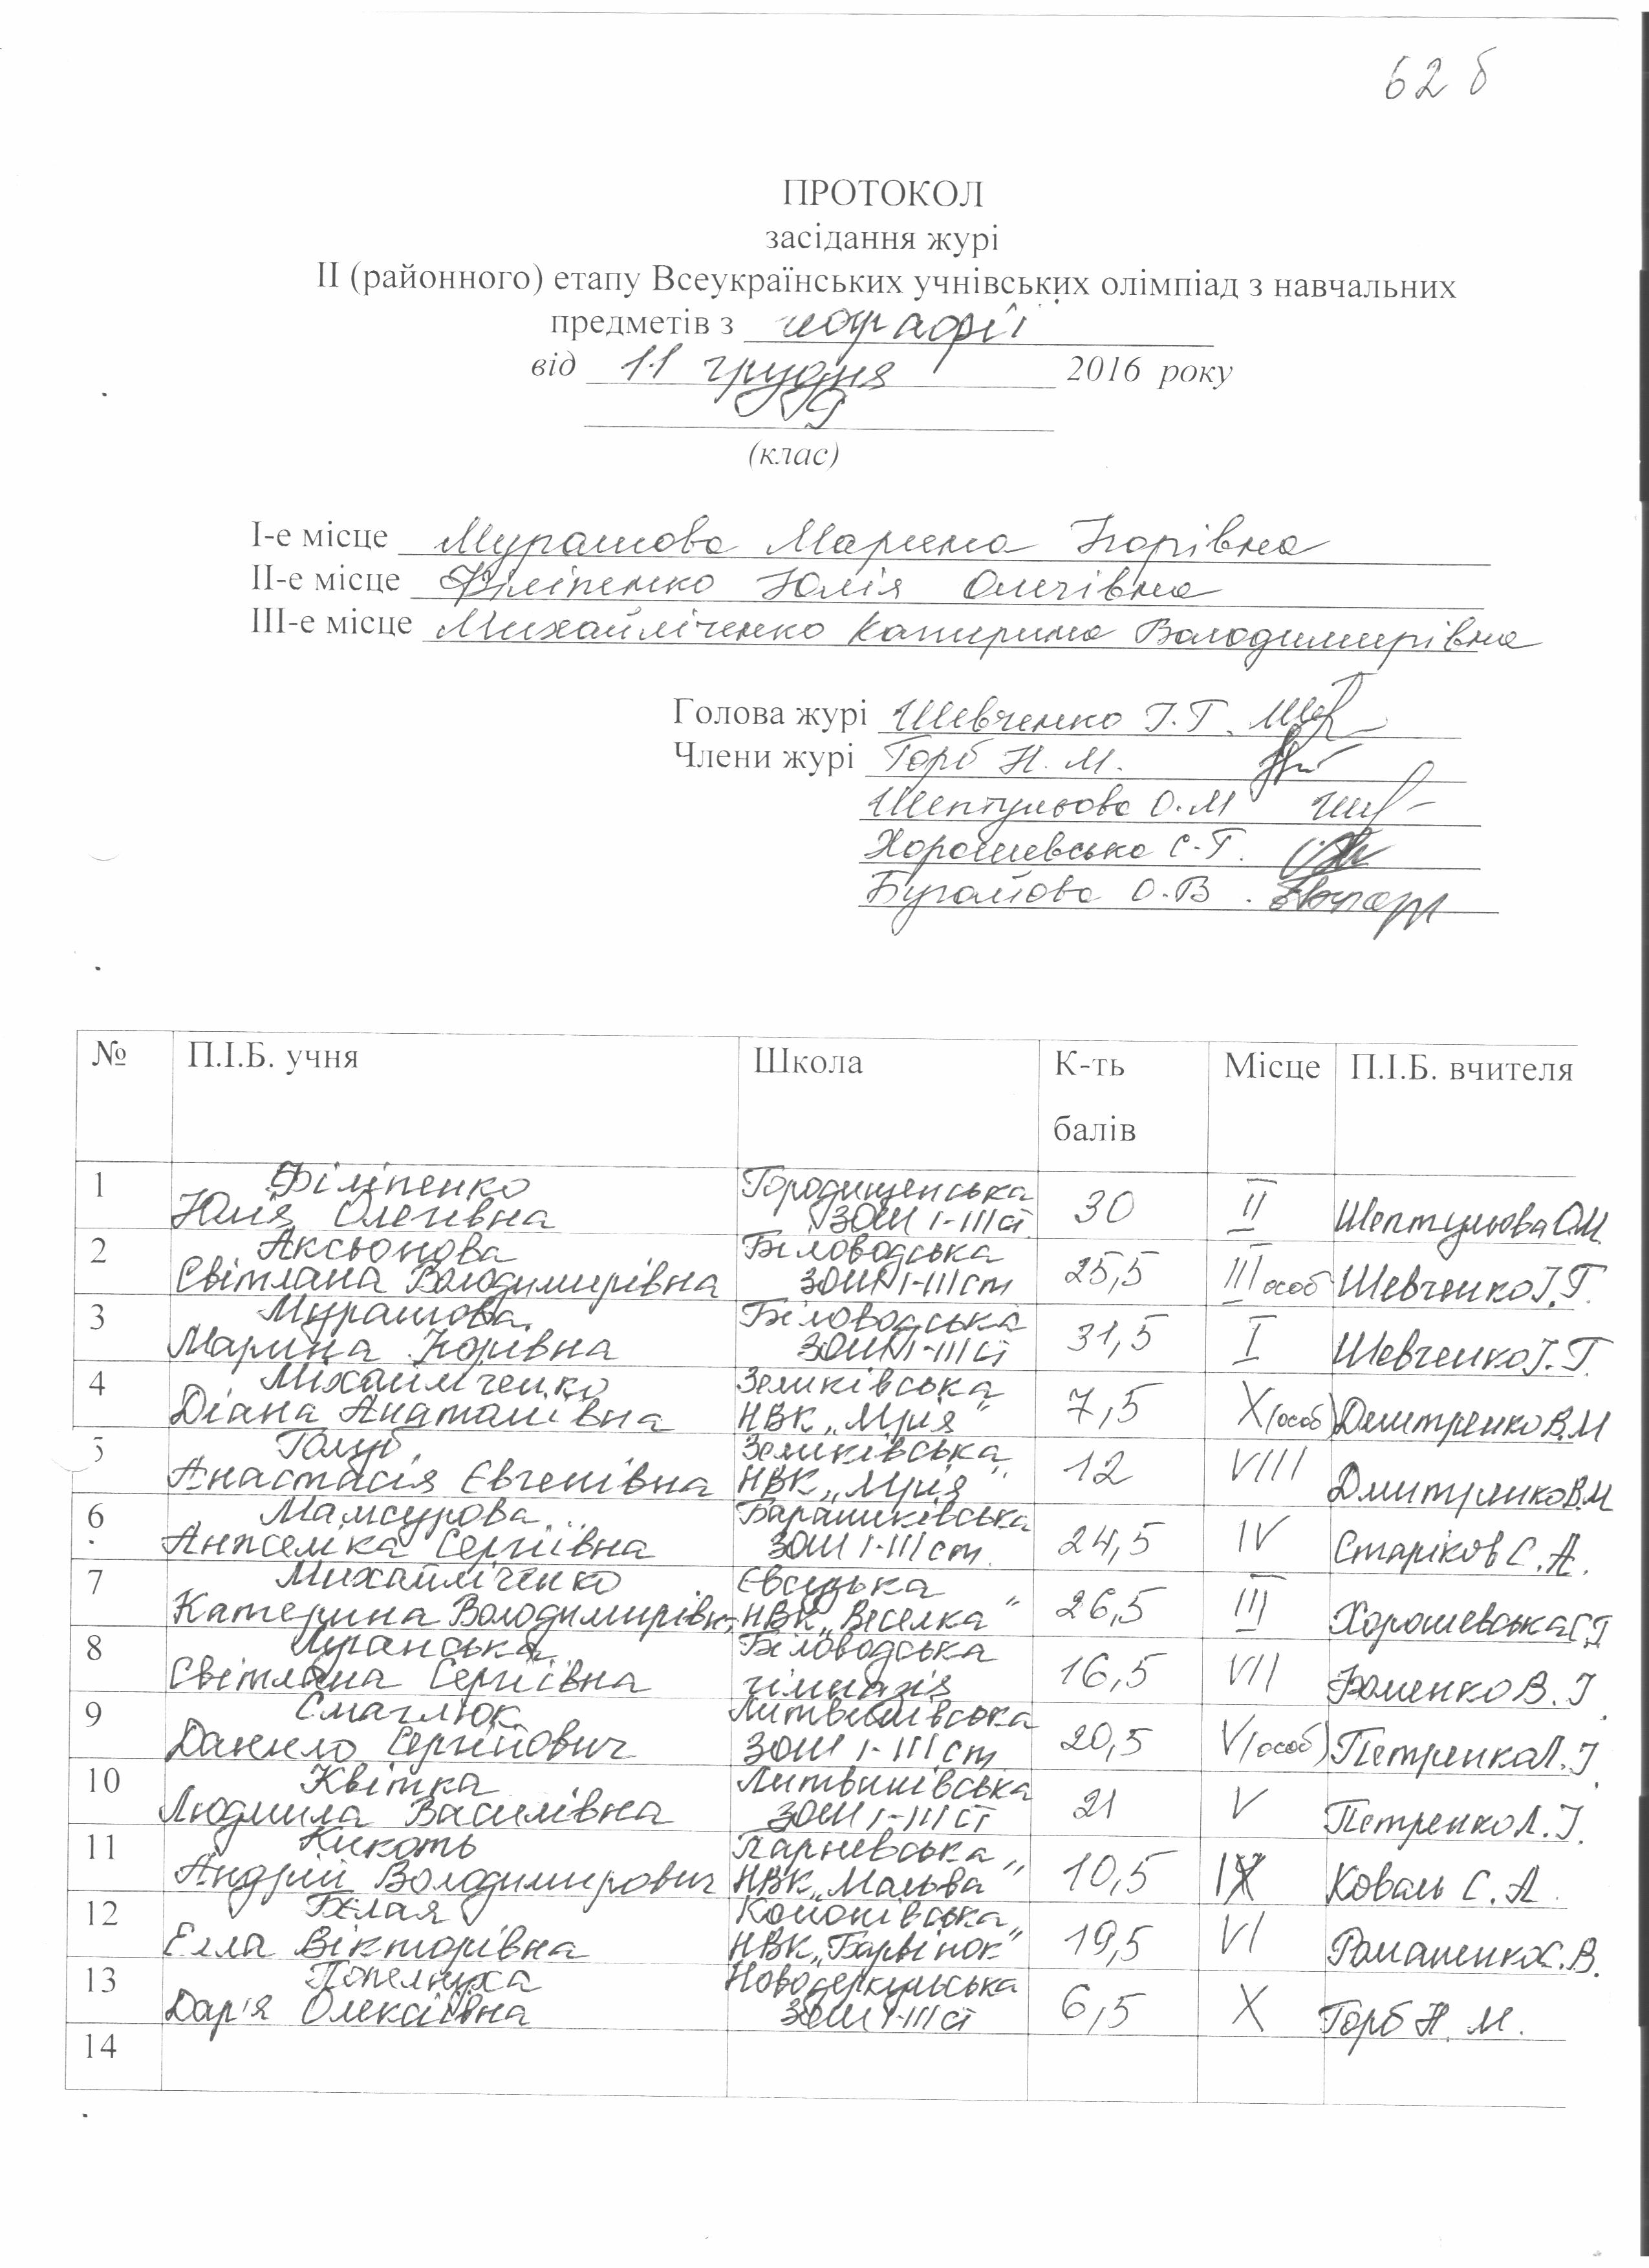 62 б
ПРОТОКОЛ
засідання журі
ІІ (районного) етапу Всеукраїнських учнівських олімпіад з навчальних
предметів з географії
від 11 грудня 2016 року
9
(клас)
І-е місце Мурашова Марина Ігорівна
ІІ-е місце Філіпенко Юлія Олегівна
ІІІ-е місце Михайліченко Катерина Володимирівна
Голова журі Шевченко І.Г.
Члени журі Горб Н. М.
Шептульова О.М
Хорошевська С.Г.
Бугайова О.В.
№ П.І.Б. учня Школа К-ть балів Місце П.І.Б. вчителя
1 Філіпенко Юлія Олегівна Городищенська ЗОШ І-ІІІ ст. 30 ІІ Шептульова О.М
2 Аксьонова Світлана Володимирівна Біловодська ЗОШ І-ІІІ ст 25,5 ІІІ особ Шевченко І.Г.
3 Мурашова Марина Ігорівна Біловодська ЗОШ І-ІІІ ст 31,5 І Шевченко І.Г.
4 Михайліченко Діана Анатоліївна Зеликівська НВК „Мрія" 7,5 Х(особ) Дмитренко В.М
5 Голуб Анастасія Євгенівна Зеликівська НВК „Мрія" 12 VIII Дмитренко В.М
6 Мамсурова Анжеліка Сергіївна Бараниківська ЗОШ І-ІІІ ст. 24,5 IV Старіков С.А.
7 Михайліченко Катерина Володимирівн Євсузька НВК „Веселка" 26,5 III Хорошевська С.Г
8 Луганська Світлана Сергіївна Біловодська гімназія 16,5 VII Фоменко В.І
9 Смаглюк Данило Сергійович Литвинівська ЗОШ І-ІІІ ст 20,5 V(особ) Петренко Л.І.
10 Квітка Людмила Василівна Литвинівська ЗОШ І-ІІІ ст 21 V Петренко Л.І.
11 Кикоть Андрій Володимирович Парневська НВК „Мальва" 10,5 IX Коваль С.А.
12 Білая Елла Вікторівна НВК „Барвінок" 19,5 VI Романенко С.В.
13 Попелнуха Дар'я Олексіївна Новодеркульська ЗОШ І-ІІІ ст 6,5 X Горб Н. М.
14